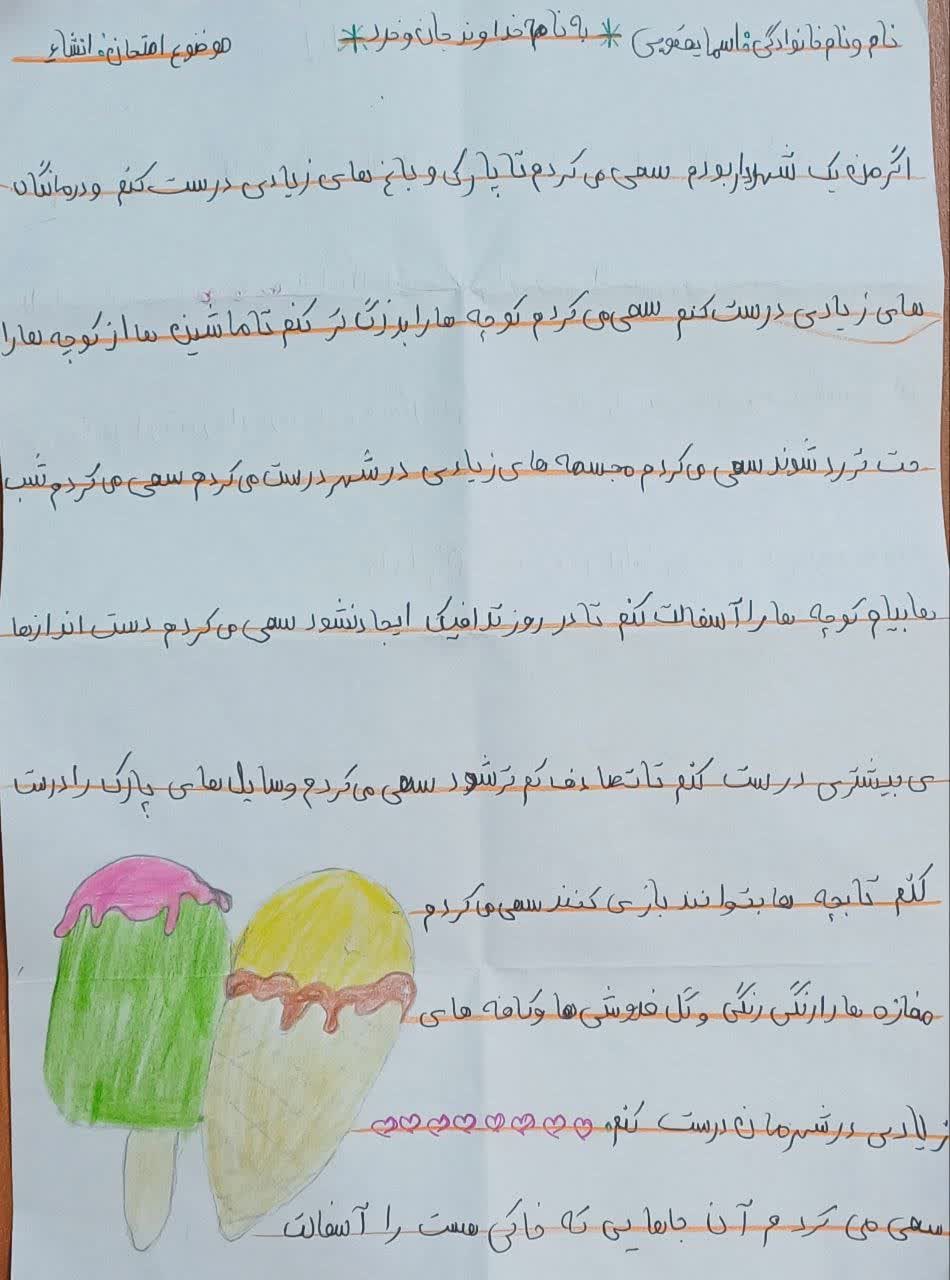 نام و نام خانوادگی: اسما یعقوبی * به نام خداوند جان و خرد * موضوع امتحان: انشاء
اگر من یک شهردار بودم سعی می کردم تا پارک و باغ های زیادی درست کنم و درمانگان
های زیادی درست کنم سعی می کردم کوچه ها را بزرگ تر کنم تا ماشین ها از کوچه ها را
حت تر رد شوند سعی می کردم مجسمه های زیادی در شهر درست می کردم سعی می کردم شب
ها بیام کوچه ها را آسفالت کنم تا در روز ترافیک ایجاد نشود سعی می کردم دست اندازها
ی بیشتری درست کنم تا تصادف کم تر شود سعی می کردم وسایل های پارک را درست
کنم تا بچه ها بتوانند بازی کنند سعی می کردم
مغازه ها را رنگی رنگی و گل فروشی ها و کافه های
زیادی در شهرمان درست کنم.
سعی می کردم آن جاهایی که خاکی هست را آسفالت